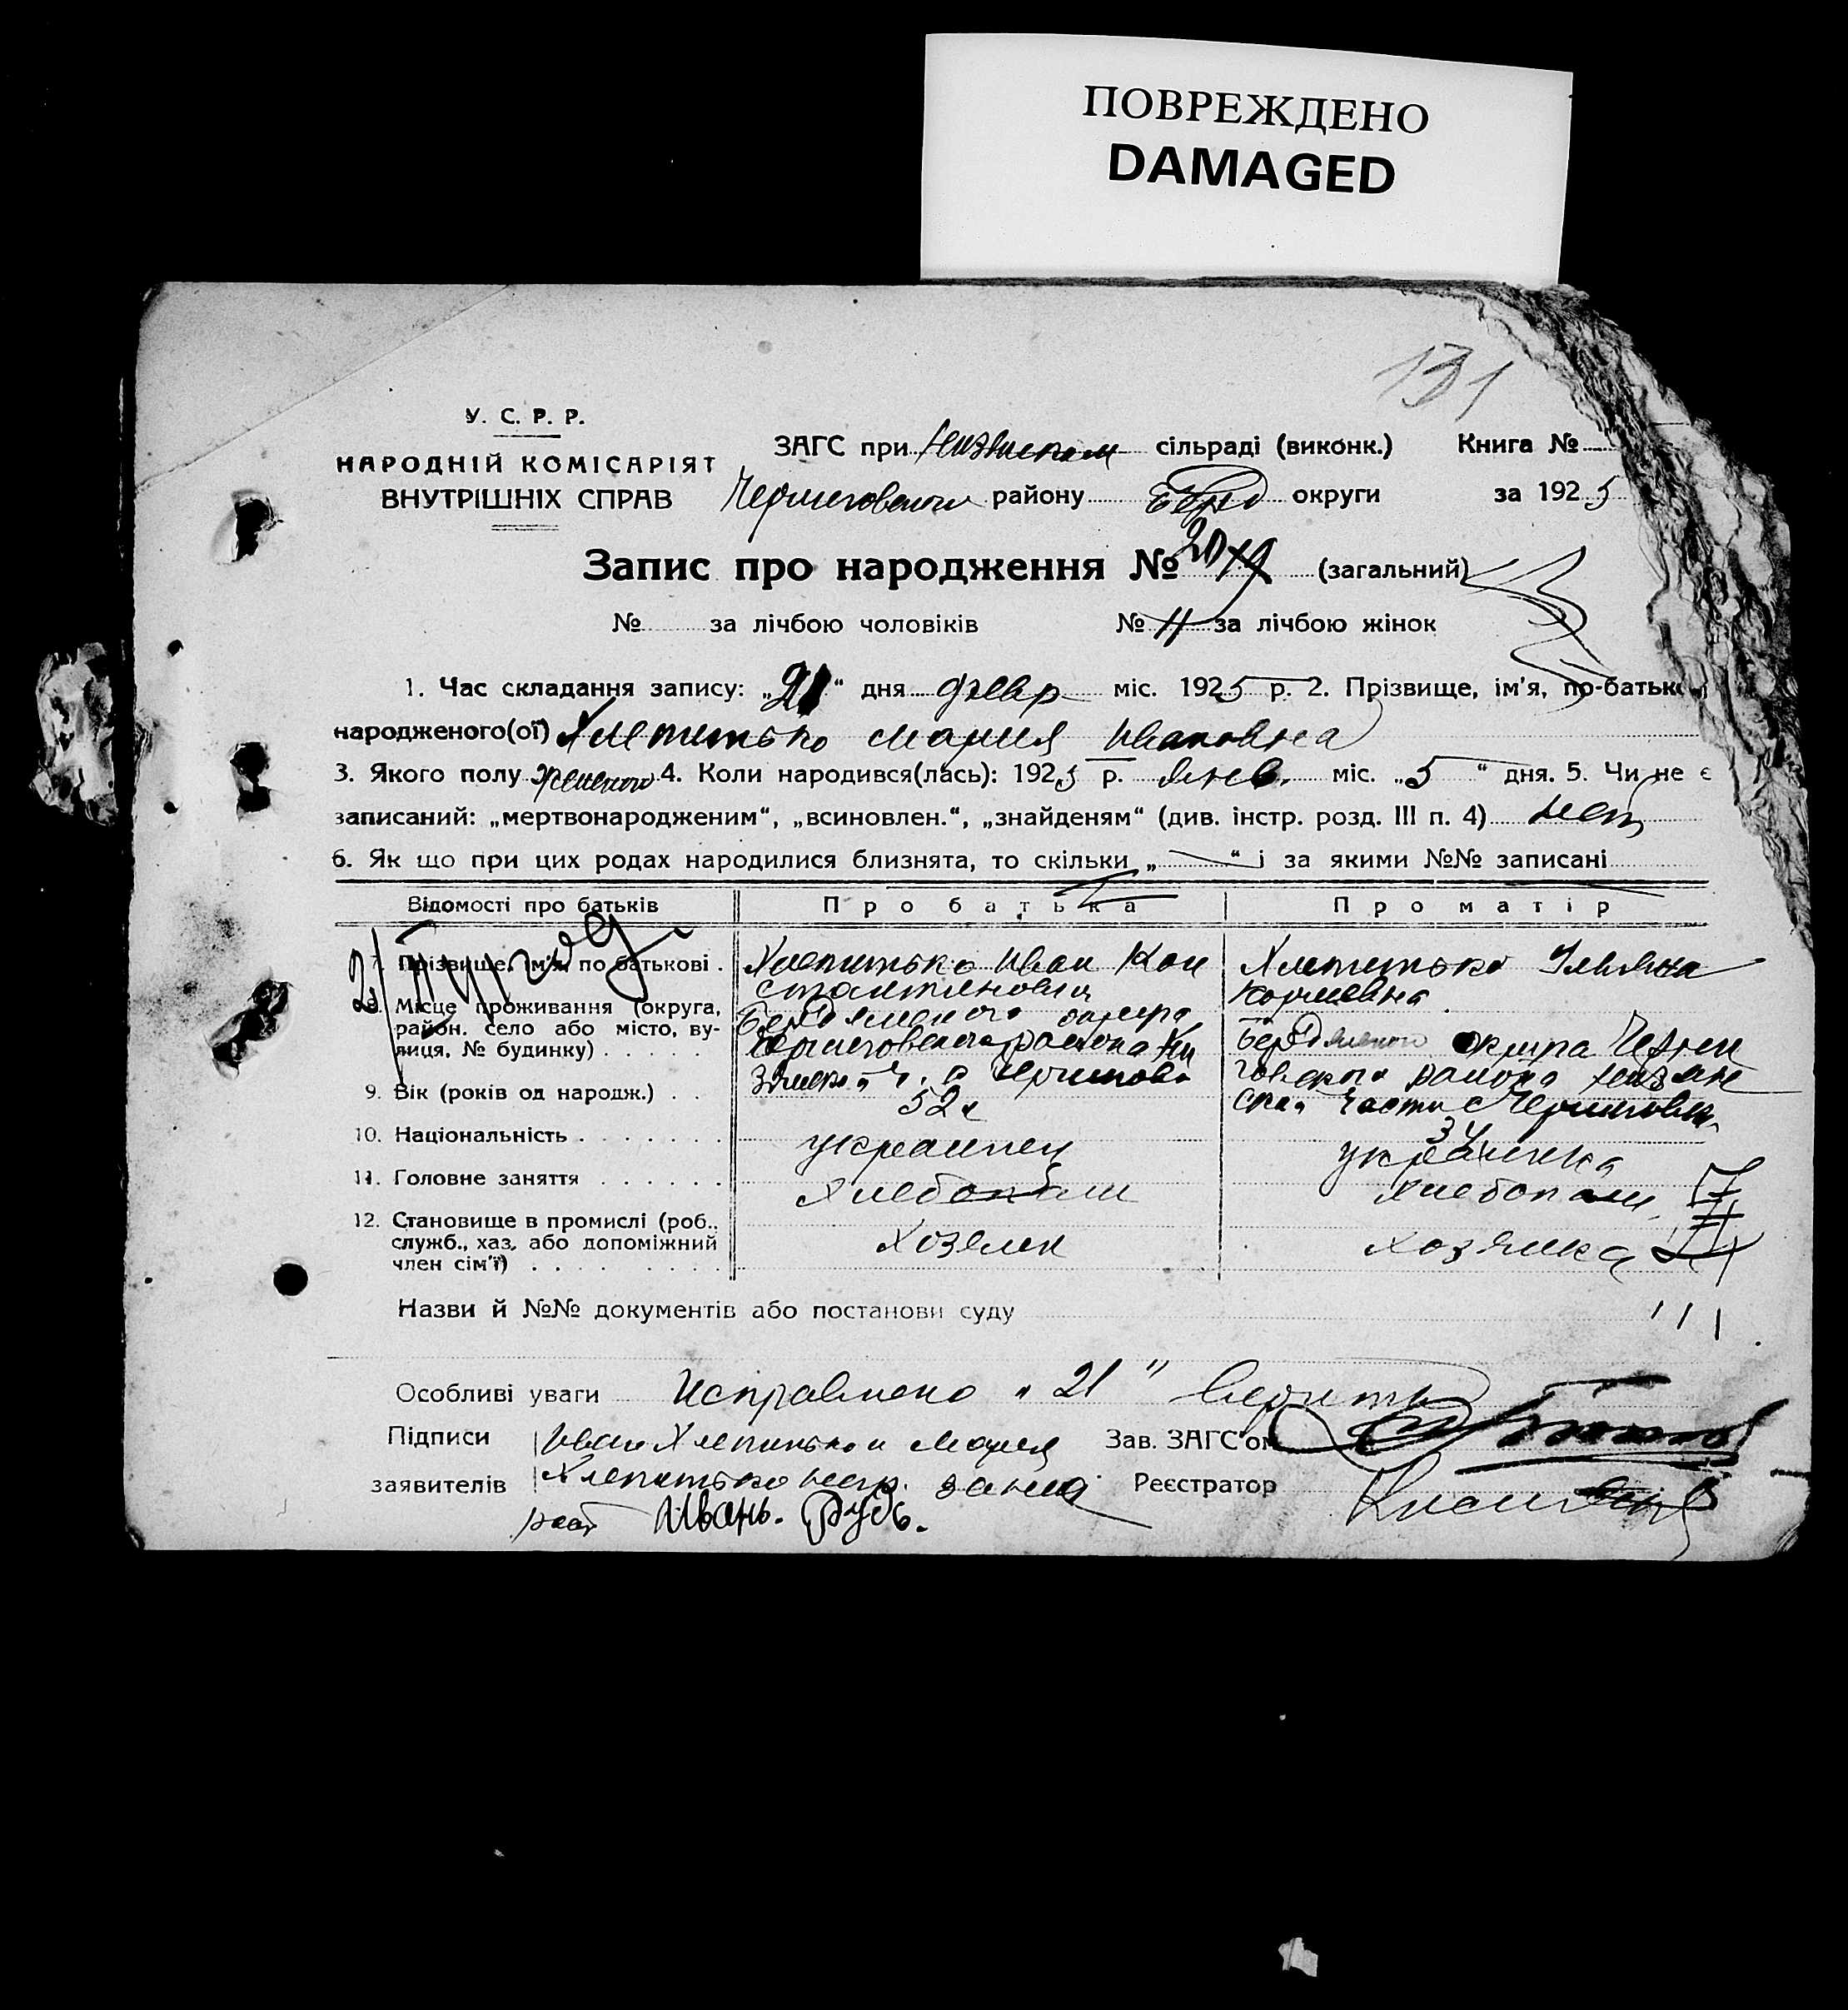 ПОВРЕЖДЕНО
DAMAGED
131
У. С. Р. Р.
НАРОДНІЙ КОМІСАРІЯТ
ВНУТРІШНІХ СПРАВ
ЗАГС при сільраді (виконк.) Книга №
району Берд округи за 1925
Запис про народження № (загальний)
№ за лічбою чоловіків № 11 за лічбою жінок
1. Час складання запису: „21“ дня февр міс. 1925 р. 2. Прізвище, ім'я, по-батьк
народженого(ої) Хлепитько Мария Ивановна
3. Якого полу женского 4. Коли народився(лась): 1925 р. Янв. міс. „5“ дня. 5. Чи не є
записаний: „мертвонародженим“, „всиновлен.“, „знайденям“ (див. інстр. розд. III п. 4) нет
6. Як що при цих родах народилися близнята, то скільки „ “ і за якими №№ записані
Відомості про батьків Про батька Про матір
7. Прізвище, ім'я, по батькові . Хлепитько Иван Кон Хлепитько Ульяна
стантинович
8. Місце проживання (округа, район, село або місто, ву-
лиця, № будинку) . . . . . Бердянского округа Бердянского округа Черни
Черниговского района Ни говского района Низян
зянской ч. с Чернигов ская части с Черниговки
9. Вік (років од народж.) . . 52 34
10. Національність . . . . . . . украинец украинка
11. Головне заняття . . . . . . хлебопаш хлебопаш
12. Становище в промислі (роб.,
служб., хаз. або допоміжний
член сім'ї) . . . . . . . . хозяин хозяйка
Назви й №№ документів або постанови суду
Особливі уваги Исправлено „21“ верить
Підписи Иван Хлепитько и Мария Зав. ЗАГС'ом
заявителів Хлепитько негр. за них Реєстратор
расп Иванъ. Рудь.